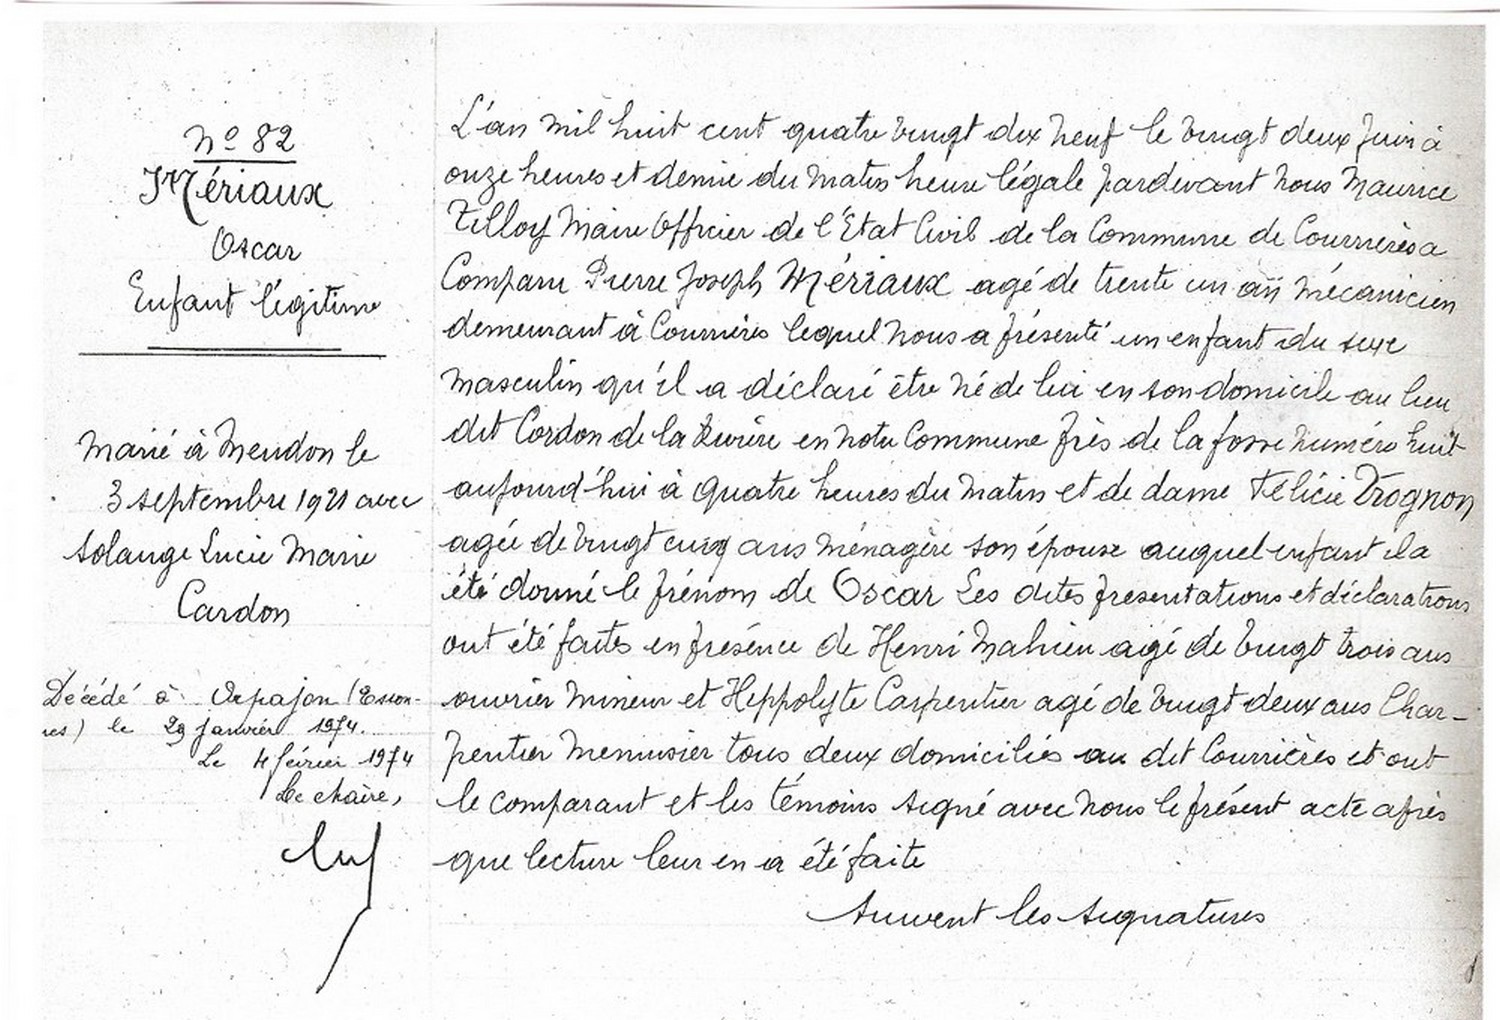 No 82
Mériaux
Oscar
Enfant légitime
Marié à Meudon le
3 septembre 1921 avec
Solange Lucie Marie
Cardon
Décédé à Arpajon (Esson-
nes) le 29 janvier 1974.
Le 4 février 1974
Le Maire,
L'an mil huit cent quatre vingt dix neuf le vingt deux Juin à
onze heures et demie du matin heure légale pardevant nous Maurice
Tilloy Maire Officier de l'Etat Civil de la Commune de Courrières a
Comparu Pierre Joseph Mériaux agé de trente un ans mécanicien
demeurant à Courrières lequel nous a présenté un enfant du sexe
masculin qu'il a déclaré être né de lui en son domicile au lieu
dit Cordon de la Rivière en notre Commune près de la fosse numéro huit
aujourd'hui à quatre heures du matin et de dame Félicie Drognon
agée de vingt cinq ans ménagère son épouse auquel enfant il a
été donné le prénom de Oscar Les dites présentations et déclarations
ont été faites en présence de Henri Mahieu agé de vingt trois ans
ouvrier mineur et Hippolyte Carpentier agé de vingt deux ans Char-
pentier Menuisier tous deux domiciliés au dit Courrières et ont
le comparant et les témoins signé avec nous le présent acte après
que lecture leur en a été faite
Suivent les signatures